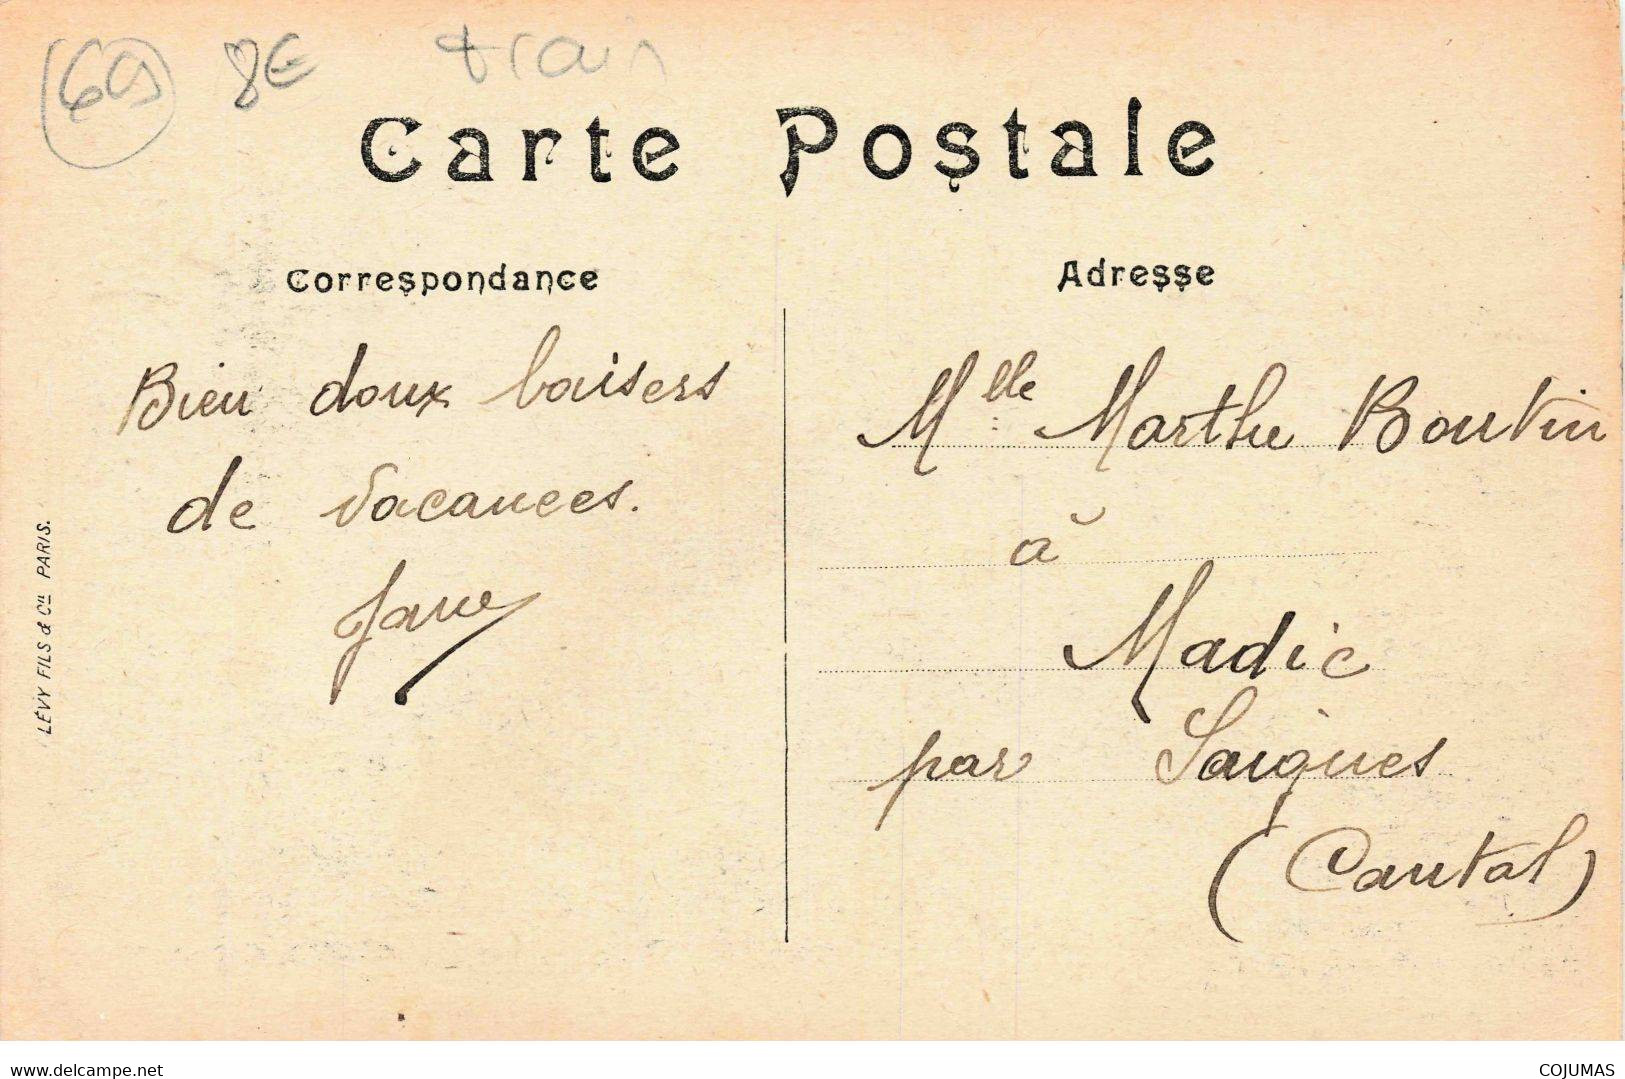 69 8€ train
Carte Postale
Correspondance
Adresse
Bien doux baisers
de vacances.
Jane
Mlle Marthe Boutin
à
Madic
par Saignes
(Cantal)
LÉVY FILS & Cie PARIS.
www.delcampe.net
COJUMAS